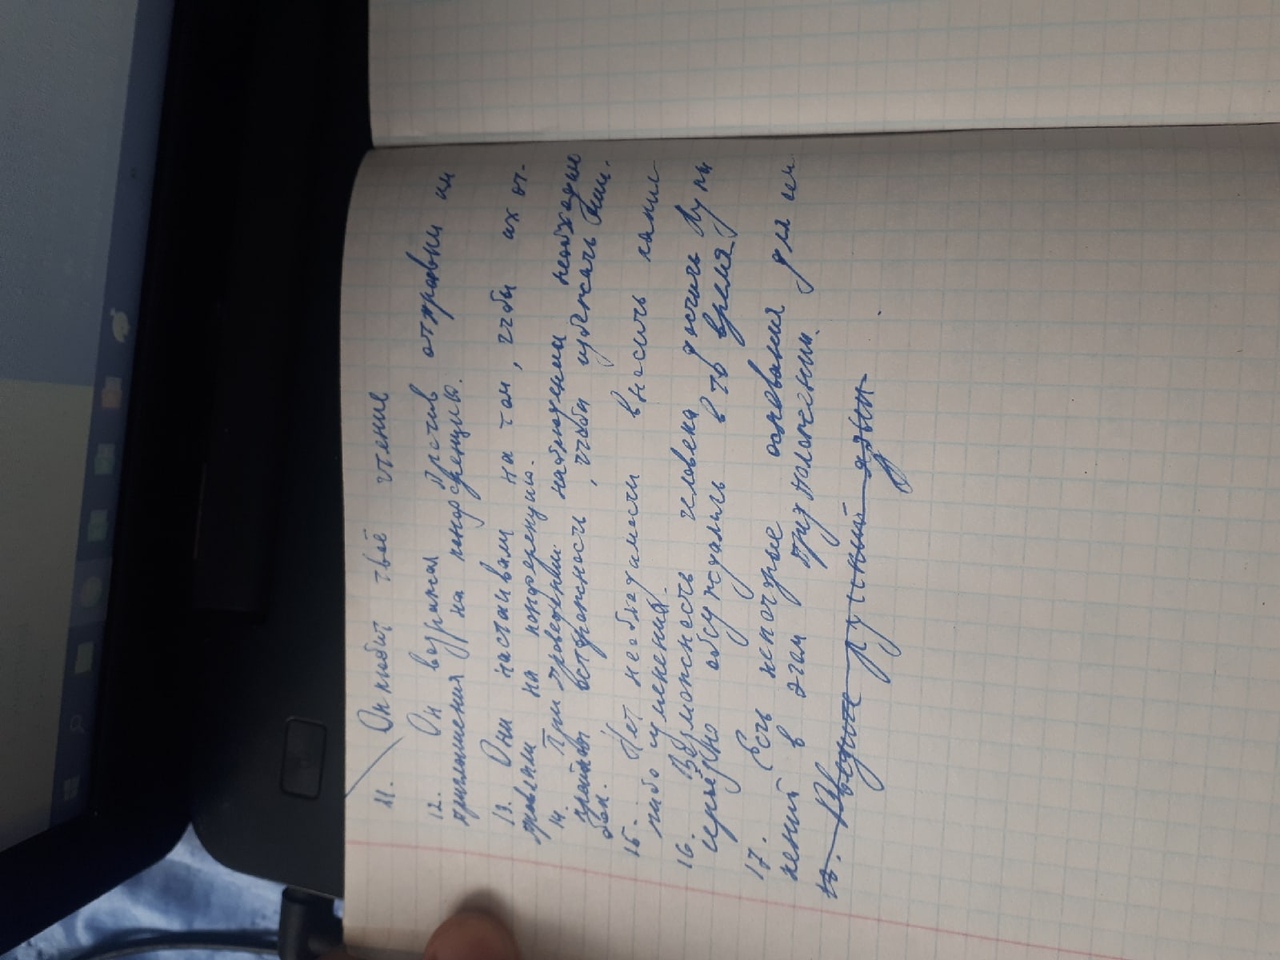 11. Он любит твоё чтение
12. Он возражал против отправки им
приглашения на конференцию.
13. Они настаивали на том, чтобы их от-
правили на конференцию.
14. При проведении наблюдений необходимо
осторожность, чтобы избежать
15. Нет необходимости вносить какие
либо изменений.
16. Возможность человека достичь Луны
серьёзно обсуждалась в то время
17. Есть некоторые основания для из
нений в этом предположении.
18. Введите русский язык